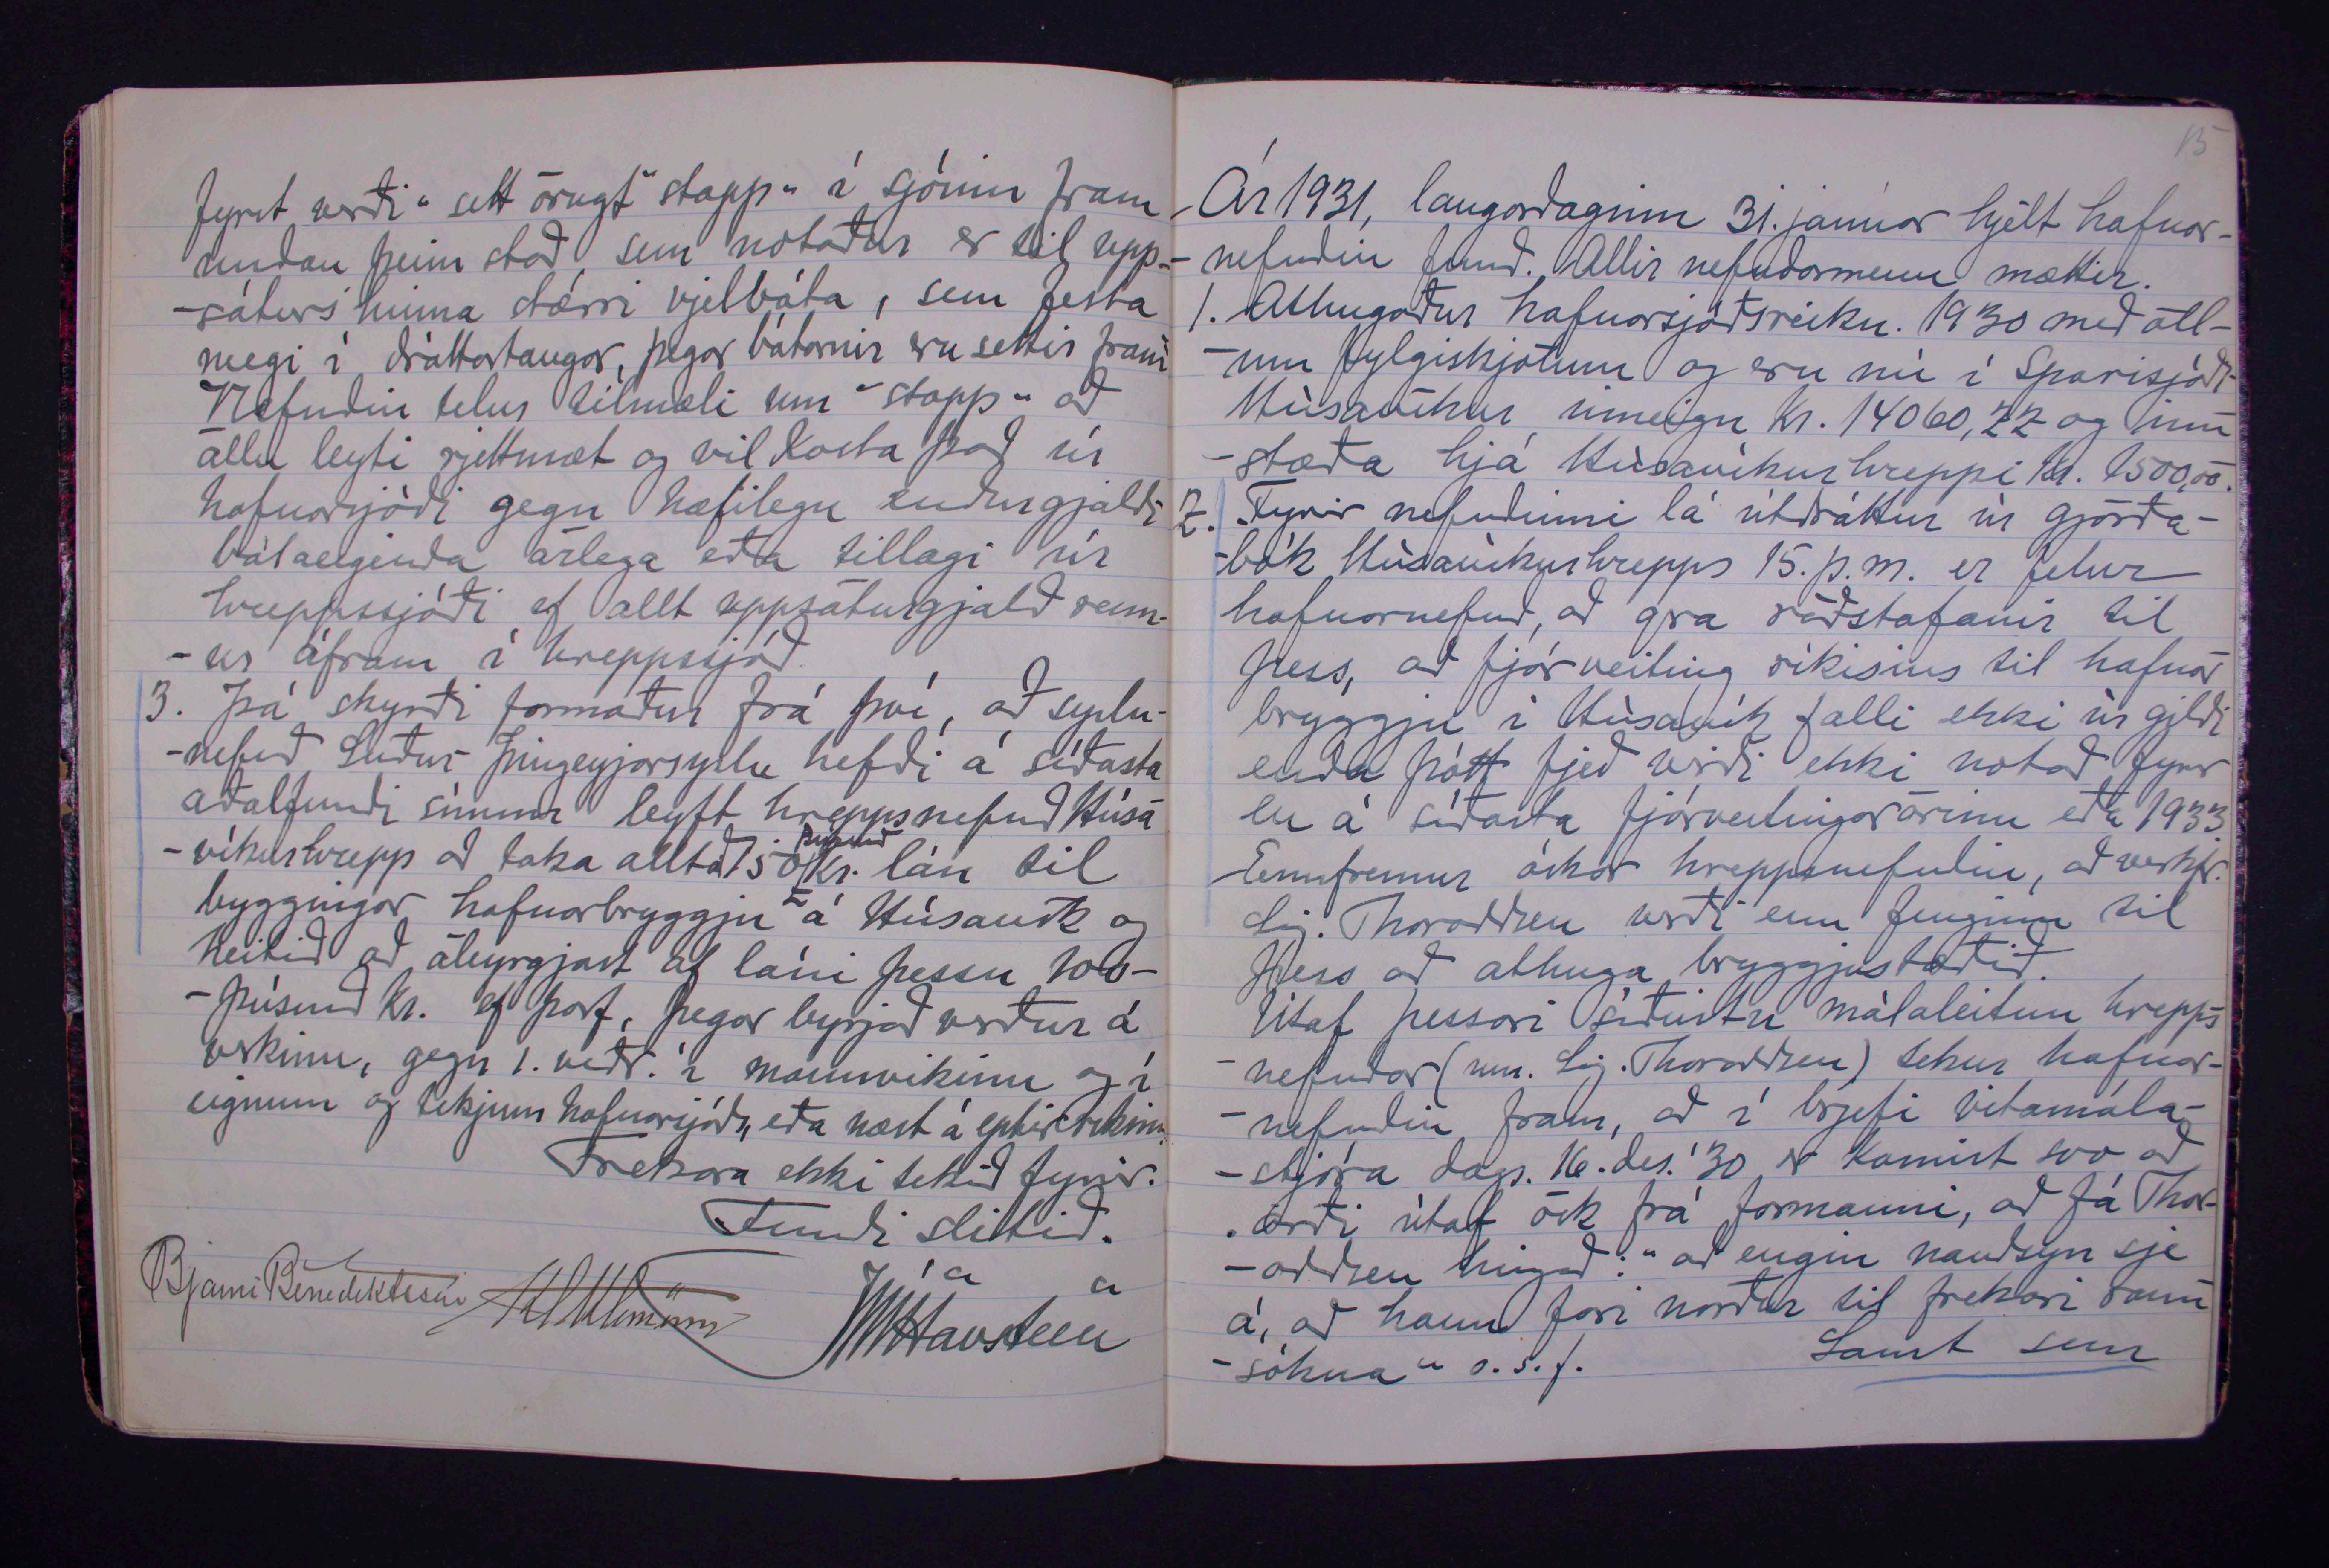 fyrst verði " sett örugt "stopp" í sjóinn fram
undan þeim stað, sem notaður er til upp-
-sáturs hinna stærri vjelbáta, sem festa
megi í dráttartaugar, þegar bátarnir eru settir fram
Nefndin telur tilmæli um "stopp" að
öllu leyti rjettmæt og vil kosta það úr
hafnarsjóði gegn hæfilegu endurgjaldi
bátaeigenda árlega eða tillagi úr
hreppssjóði ef allt uppsátursgjald renn-
-ur áfram í hreppssjóð.
3. Þá skyrði formaður frá því, að syslu-
-nefnd Suður-Þingeyjarsyslu hefði á síðasta
aðalfundi sínum leyft hreppsnefnd Húsa
-víkurhrepp að taka allt að 150 þúsund kr. lán til
byggingar hafnarbryggju á Húsavík og
heitið að ábyrgjast af láni þessu 100-
-þúsund kr. ef þarf, þegar byrjað verður á
verkinu, gegn 1. veðr. í mannvirkinu og í
eignum og tekjum hafnarsjóðs, eða næst á eptir ríkinu.
Frekara ekki tekið fyrir.
Fundi slitið.
Bjarni Benediktsson
JHavsteen
15
Ár 1931, laugardaginn 31. janúar hjelt hafnar-
-nefndin fund. Allir nefndarmenn mættir.
1. Athugaður hafnarsjóðsreikn. 1930 með öll-
-um fylgiskjölum og eru nú í Sparisjóði
Húsavíkur inneign kr. 14060,22 og inn
-stæða hjá Húsavíkurhreppi kr. 1500,00.
2. Fyrir nefndinni lá útdráttur úr gjörða-
-bók Húsavíkurhrepps 15. þ.m. er felur
hafnarnefnd, að gra ráðstafanir til
þess, að fjárveiting ríkisins til hafnar
bryggju í Húsavík falli ekki úr gildi
enda þótt fjeð verði ekki notað fyrr
en á síðasta fjárveitingarárinu eða 1933
Ennfremur óskar hreppsnefndin, að verkfr.
Sig. Thoroddsen verði enn fenginn til
þess að athuga bryggjustæðið.
Útaf þessari síðustu málaleitun hrepps
-nefndar (um. Sig. Thoroddsen) tekur hafnar-
-nefndin fram, að í brjefi vitamála-
-stjóra dags. 16. des. '30 er komist svo að
orði útaf ósk frá formanni, að fá Thor-
-oddsen hingað: " að engin nauðsyn sje
á, að hann fari norður til frekari rann
-sókna " o.s.f. Samt sem